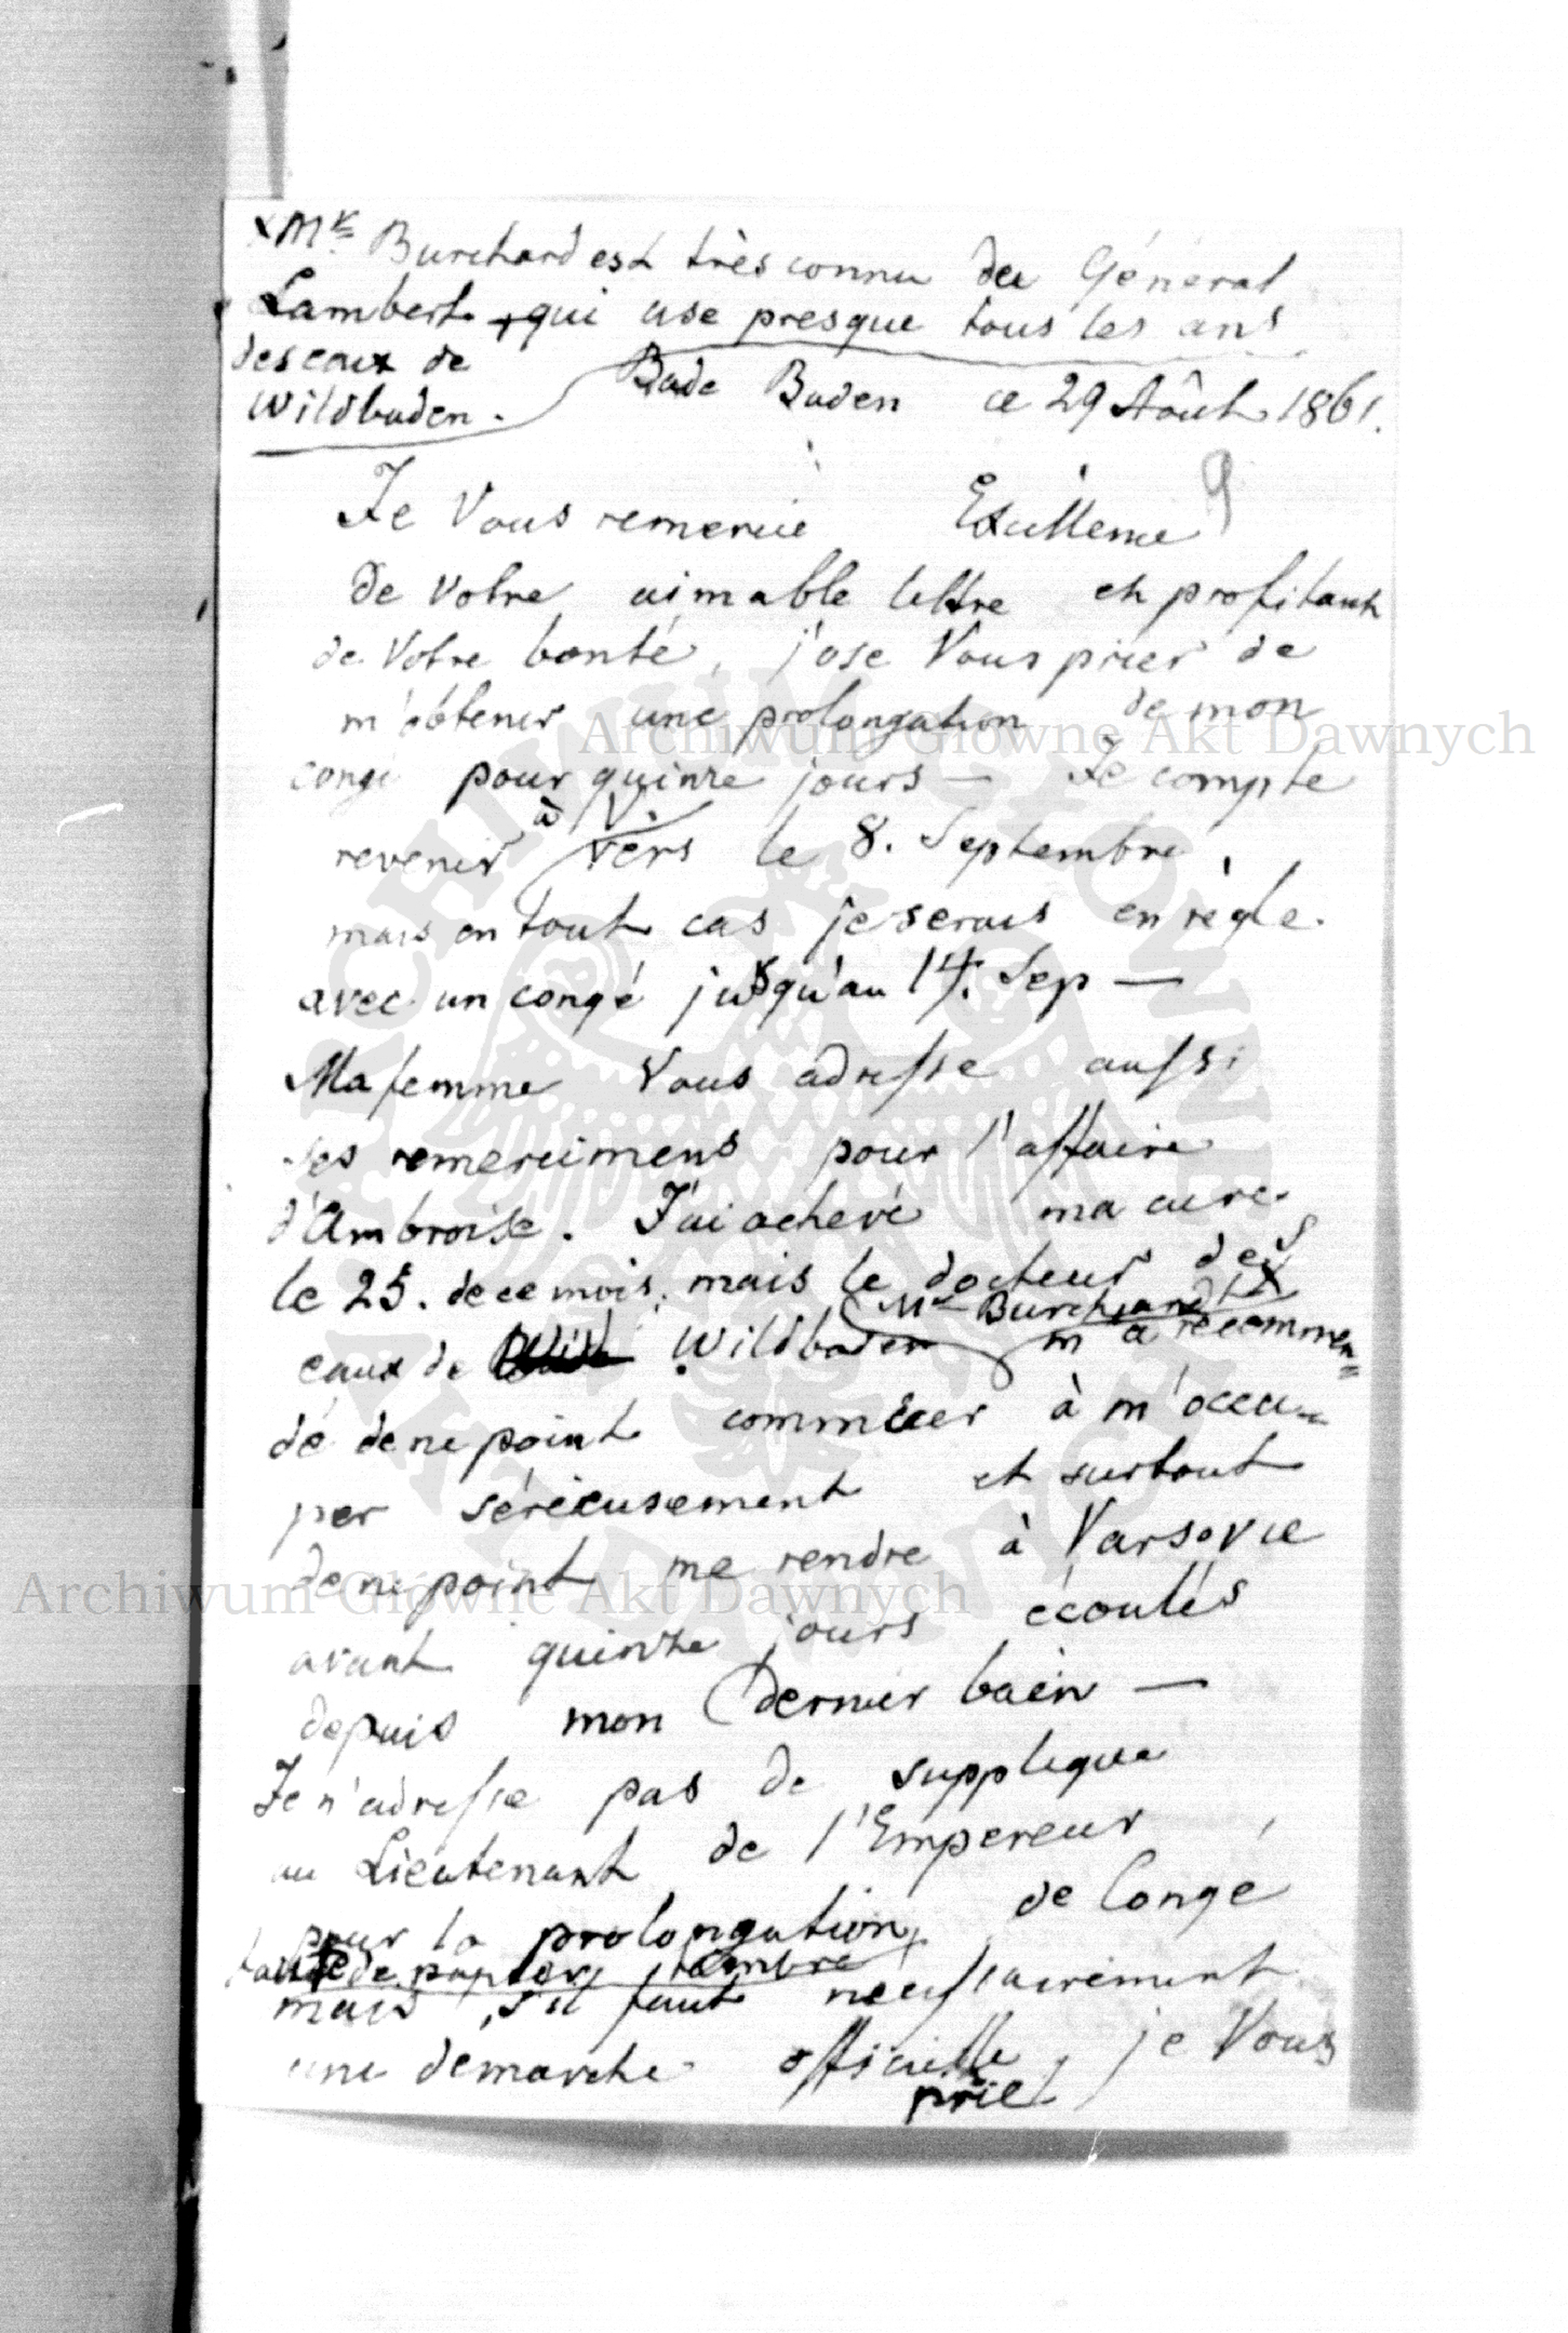 x Mr Burchard est très connu du Général
Lambert, qui use presque tous les ans
des eaux de
Wildbaden.
Bade Baden ce 29 Août 1861.
9
Je Vous remercie Excellence
de Votre aimable lettre et profitant
de Votre bonté, j'ose Vous prier de
m'obtenir une prolongation de mon
congé pour quinze jours — Je compte
revenir à V. vers le 8. Septembre,
mais en tout cas je serais en règle
avec un congé jusqu'au 14. Sep —
Ma femme Vous adresse aussi
ses remercimens pour l'affaire
d'Ambroise. J'ai achevé ma cure
le 25. de ce mois, mais le docteur des
Mr Burchard x
eaux de Wildbaden m'a recommen=
dé de ne point commencer à m'occu=
per sérieusement et surtout
de ne point me rendre à Varsovie
avant quinze jours écoulés
depuis mon dernier bain —
Je n'adresse pas de supplique
au Lieutenant de l'Empereur,
pour la prolongation de Congé
faute de papier timbré
mais, s'il faut nécessairement
une demarche officielle, je Vous
prie
Archiwum Główne Akt Dawnych
Archiwum Główne Akt Dawnych
ARCHIWUM GŁÓWNE AKT DAWNYCH